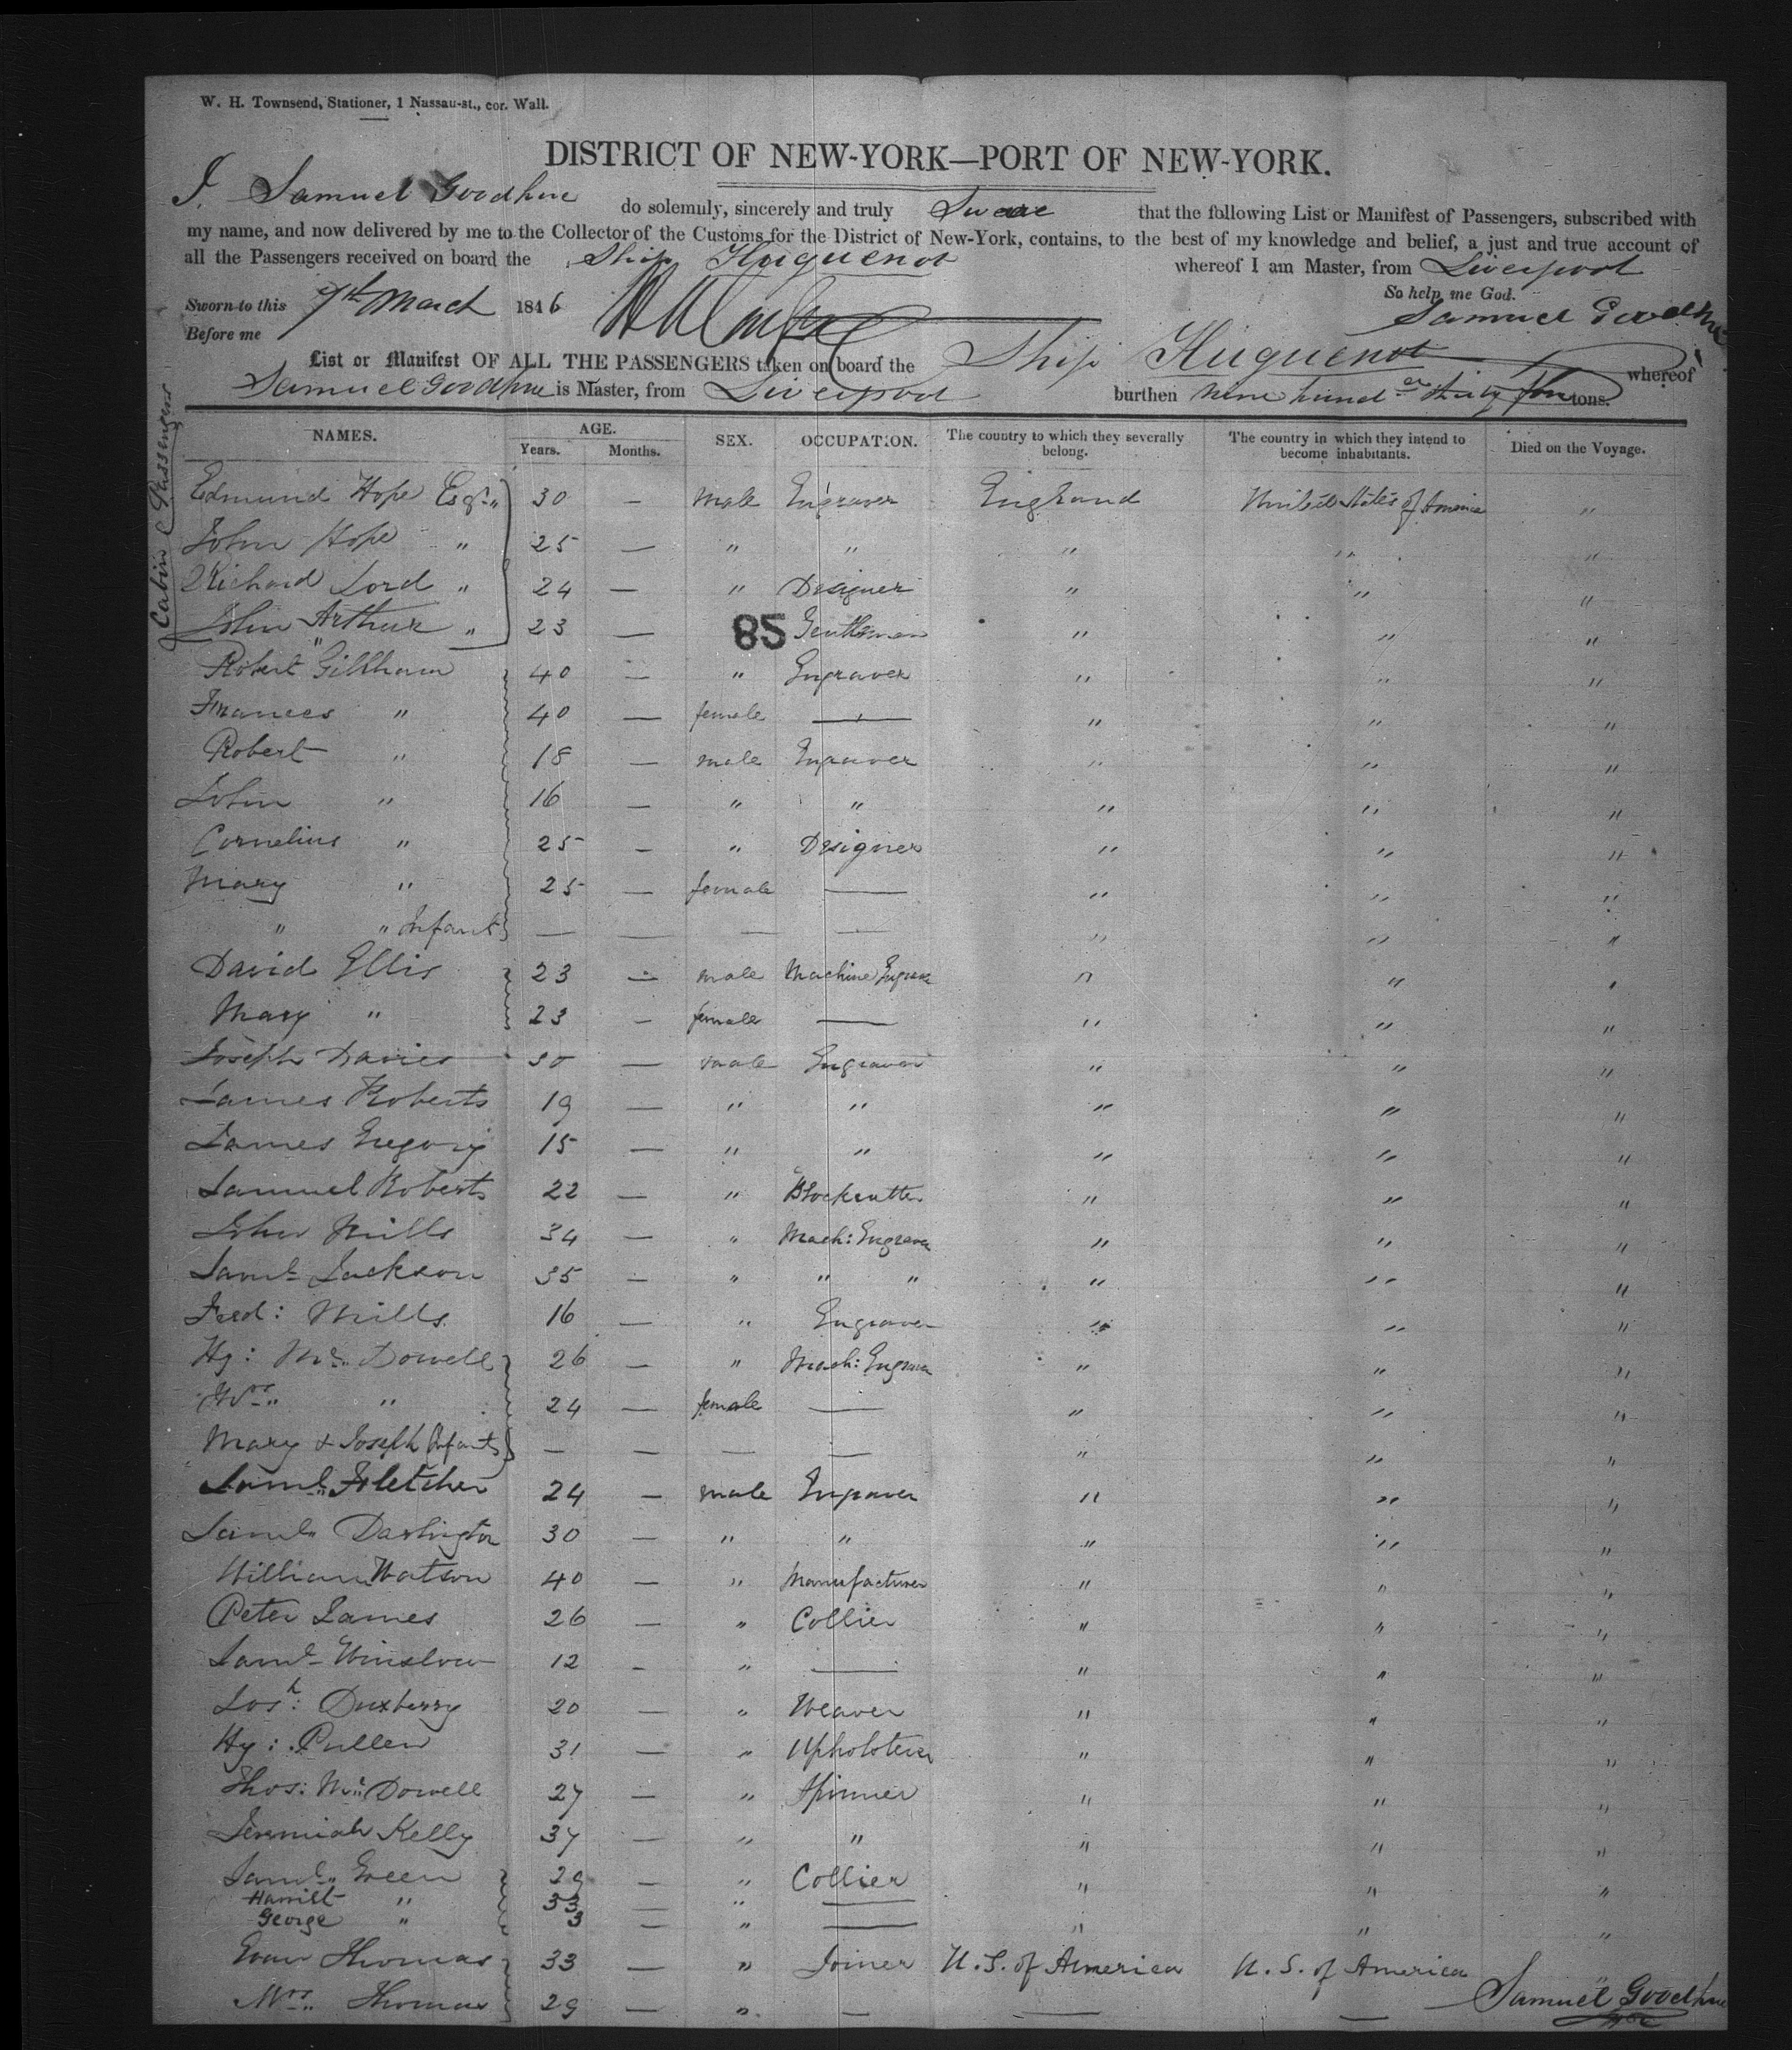 W. H. Townsend, Stationer, 1 Nassau-st., cor. Wall.
DISTRICT OF NEW-YORK—PORT OF NEW-YORK.
I. Samuel Goodhue do solemnly, sincerely and truly Swear that the following List or Manifest of Passengers, subscribed with
my name, and now delivered by me to the Collector of the Customs for the District of New-York, contains, to the best of my knowledge and belief, a just and true account of
all the Passengers received on board the Ship Huguenot whereof I am Master, from Liverpool
So help me God.
Sworn to this 7th March 1846
Samuel Goodhue
Before me
List or Manifest OF ALL THE PASSENGERS taken on board the Ship Huguenot whereof
Samuel Goodhue is Master, from Liverpool burthen nine hund tons.
Cabin Passengers
NAMES. AGE. SEX. OCCUPATION. The country to which they severally belong. The country in which they intend to become inhabitants. Died on the Voyage.
Years. Months.
Edmund Hope Esqr " 30 — Male Engraver England United States of America "
John Hope " 25 — " " " " "
Richard Lord " 24 — " Designer " " "
John Arthur " 23 — 85 Gentleman " " "
Robert Gillham 40 — " Engraver " " "
Frances " 40 — female — " " "
Robert " 18 — male Engraver " " "
John " 16 — " " " " "
Cornelius " 25 — " Designer " " "
Mary " 25 — female — " " "
" " Infant — — — — " " "
David Ellis 23 — male Machine Engraver " " "
Mary " 23 — female — " " "
Joseph Davies 30 — male Engraver " " "
James Roberts 19 — " " " " "
James Gregory 15 — " " " " "
Samuel Roberts 22 — " Blockcutter " " "
John Mills 34 — " Mach: Engraver " " "
Saml Jackson 35 — " " " " " "
Fred: Mills 16 — " Engraver " " "
Hy: Mc Dowell 26 — " Mach: Engraver " " "
Mrs " " 24 — female — " " "
Mary & Joseph Infants — — — — " " "
Saml Fletcher 24 — male Engraver " " "
Saml Darlington 30 — " " " " "
William Watson 40 — " Manufacturer " " "
Peter James 26 — " Collier " " "
Saml Winslow 12 — " — " " "
Josh: Duxberry 20 — " Weaver " " "
Hy: Pullen 31 — " Upholsterer " " "
Thos: Mc Dowell 27 — " Spinner " " "
Jeremiah Kelly 37 — " " " " "
Saml Green 29 — " Collier " " "
Harriet " 33 — " —
George " 3 — " — " " "
Evan Thomas 33 — " Joiner U.S. of America U.S. of America "
Mrs Thomas 29 — " — — — Samuel Goodhue